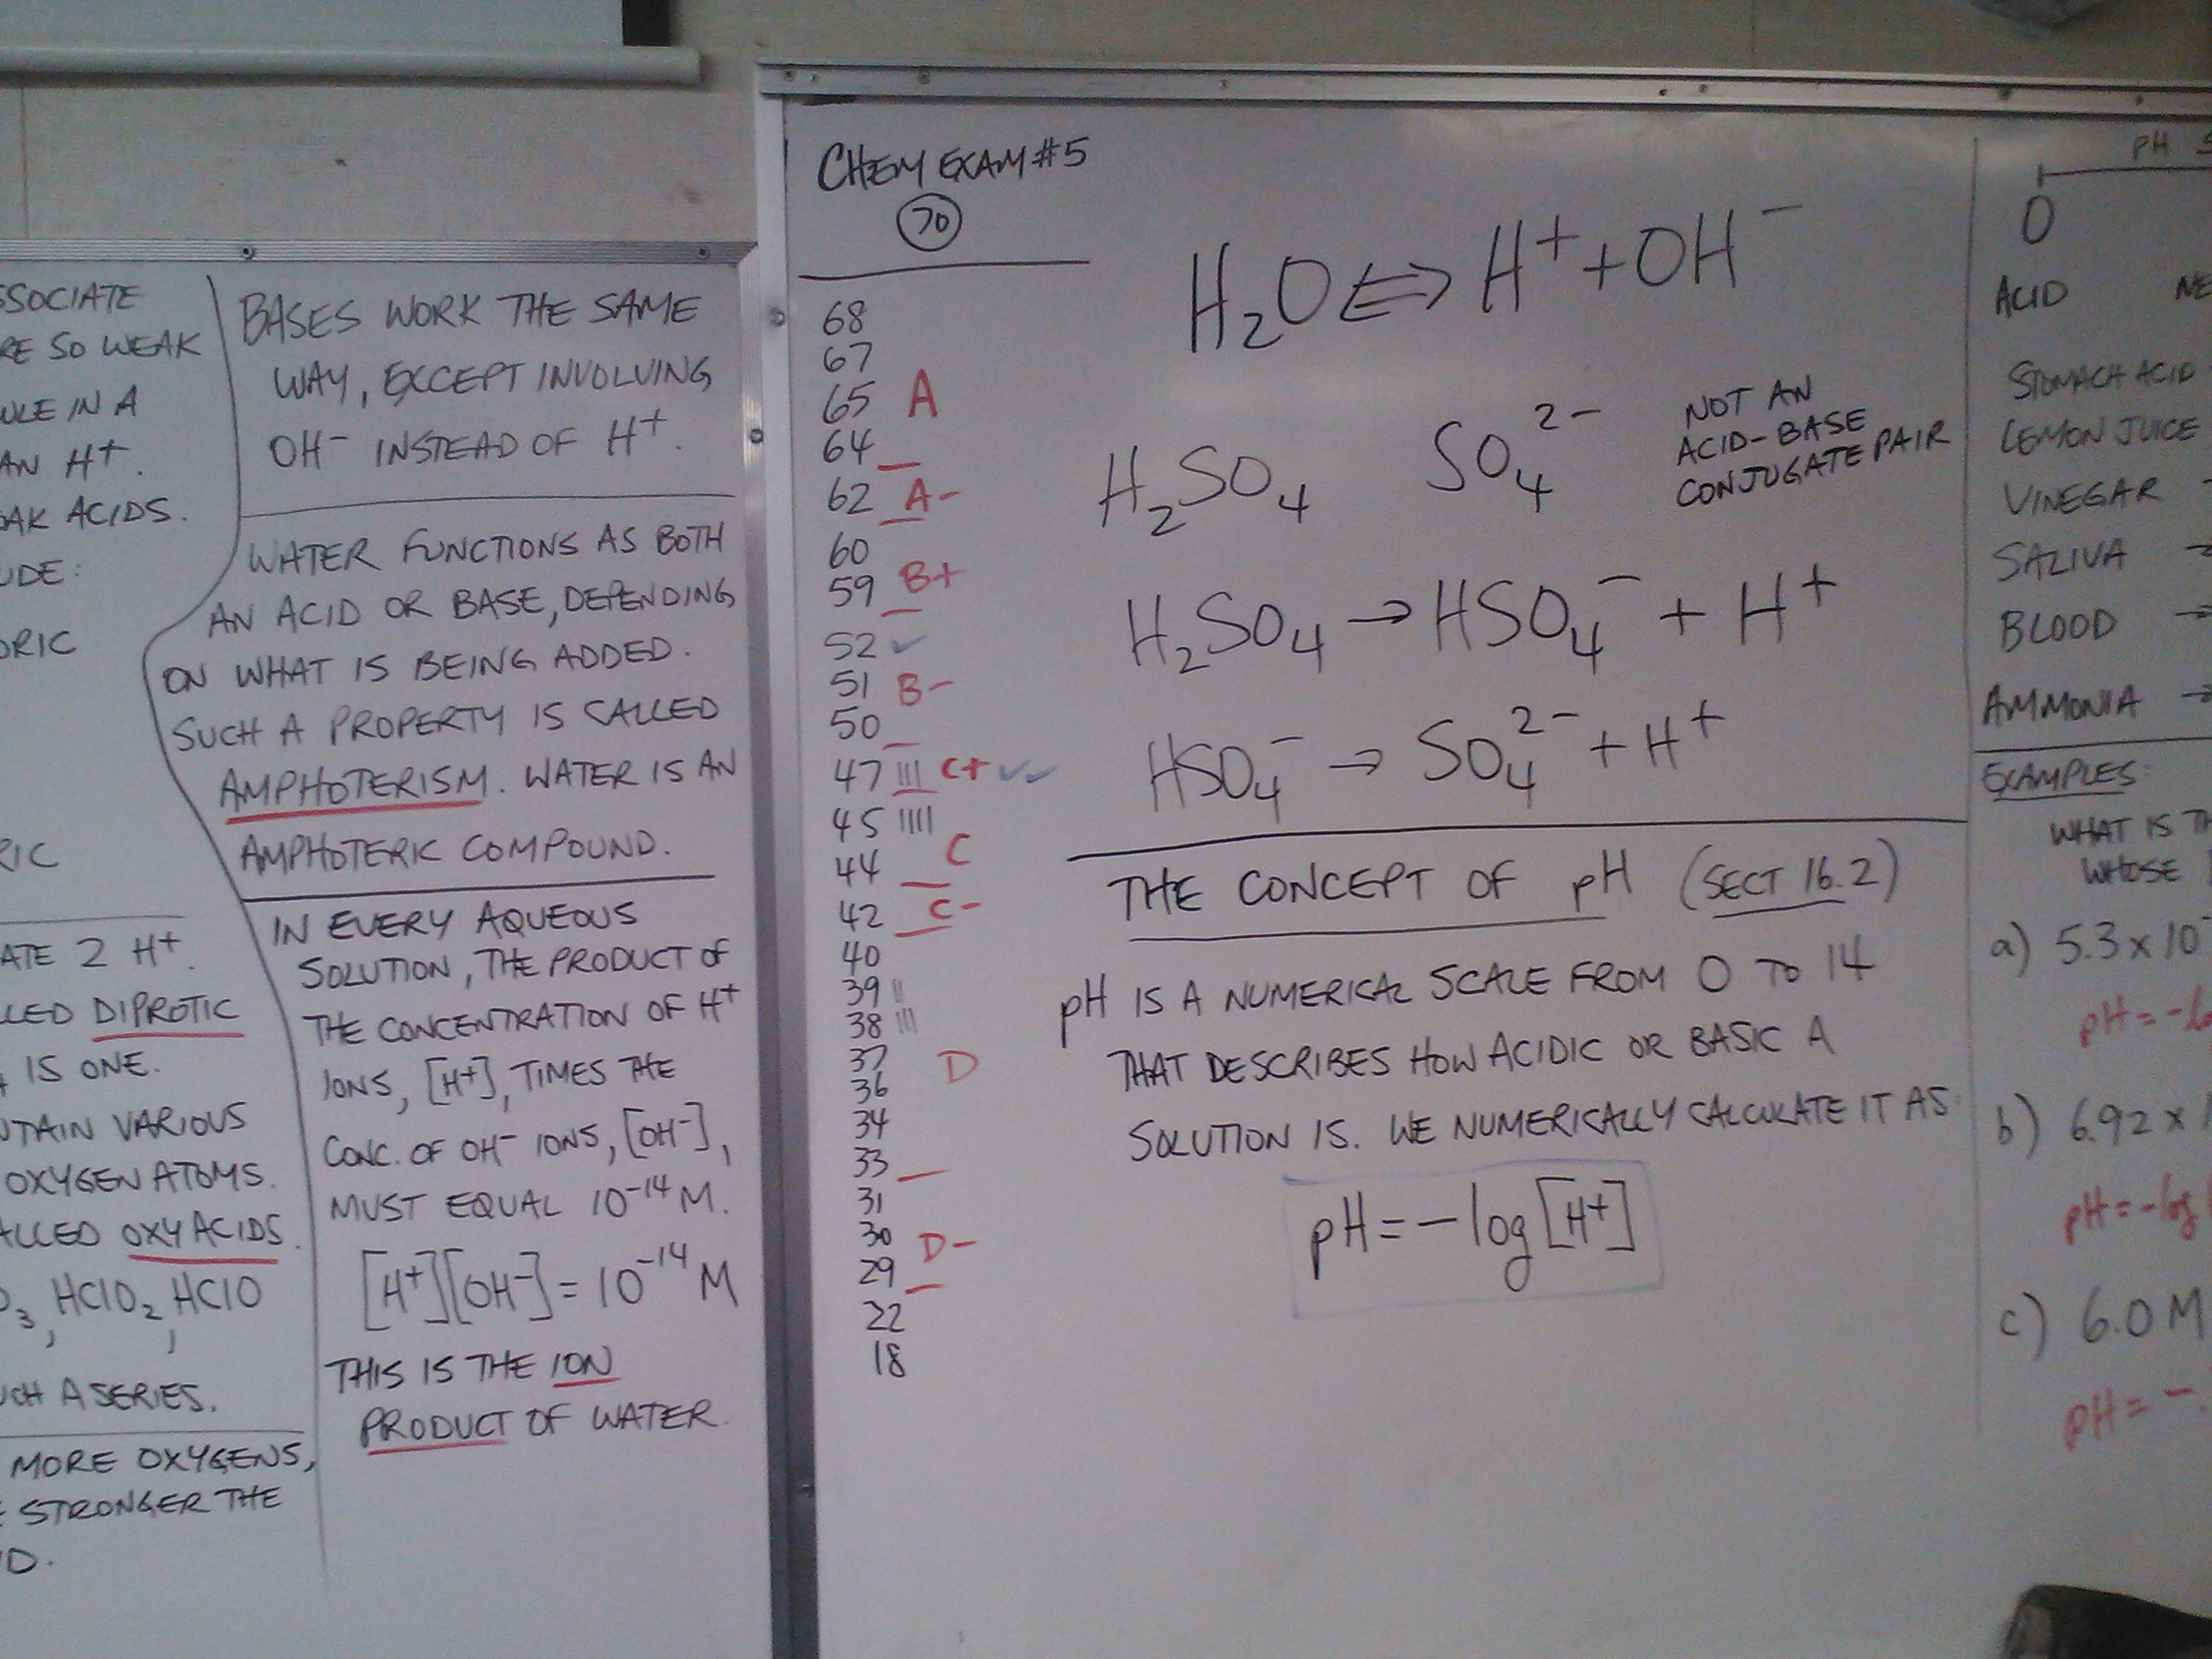 SSOCIATE
RE SO WEAK
ULE IN A
AN H⁺.
EAK ACIDS.
UDE:
ORIC
RIC
ATE 2 H⁺.
LLED DIPROTIC
IS ONE.
NTAIN VARIOUS
OXYGEN ATOMS.
ALLED OXYACIDS.
O₃, HClO₂, HClO
UCH A SERIES.
MORE OXYGENS,
E STRONGER THE
D.
BASES WORK THE SAME
WAY, EXCEPT INVOLVING
OH⁻ INSTEAD OF H⁺.
WATER FUNCTIONS AS BOTH
AN ACID OR BASE, DEPENDING
ON WHAT IS BEING ADDED.
SUCH A PROPERTY IS CALLED
AMPHOTERISM. WATER IS AN
AMPHOTERIC COMPOUND.
IN EVERY AQUEOUS
SOLUTION, THE PRODUCT OF
THE CONCENTRATION OF H⁺
IONS, [H⁺], TIMES THE
CONC. OF OH⁻ IONS, [OH⁻],
MUST EQUAL 10⁻¹⁴ M.
[H⁺][OH⁻] = 10⁻¹⁴ M
THIS IS THE ION
PRODUCT OF WATER.
CHEM EXAM #5
70
68
67
65 A
64
62 A-
60
59 B+
52 ✓
51 B-
50
47 ||| C+ ✓✓
45 ||||
C
44
42 C-
40
39 ||
38 |||
37
D
36
34
33
31
30
D-
29
22
18
H₂O ⇔ H⁺ + OH⁻
H₂SO₄ SO₄²⁻
NOT AN
ACID-BASE
CONJUGATE PAIR
H₂SO₄ → HSO₄⁻ + H⁺
HSO₄⁻ → SO₄²⁻ + H⁺
THE CONCEPT OF pH (SECT 16.2)
pH IS A NUMERICAL SCALE FROM 0 TO 14
THAT DESCRIBES HOW ACIDIC OR BASIC A
SOLUTION IS. WE NUMERICALLY CALCULATE IT AS:
pH = -log [H⁺]
pH S
0
ACID NE
STOMACH ACID
LEMON JUICE
VINEGAR →
SALIVA →
BLOOD →
AMMONIA →
EXAMPLES:
WHAT IS TH
WHOSE
a) 5.3 x 10⁻
pH = -lo
b) 6.92 x 1
pH = -log (
c) 6.0 M
pH = -